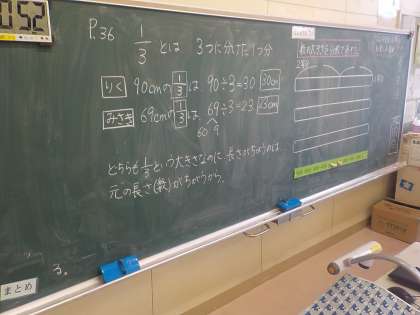 052
P.36
1/3 とは 3つに分けた1つ分
りく 90cmの 1/3 は 90÷3=30 30cm
みさき 69cmの 1/3 は 69÷3=23 23cm
60 9
どちらも 1/3 という大きさなのに 長さがちがうのは、
元の長さ(数)がちがうから。
る。
まとめ